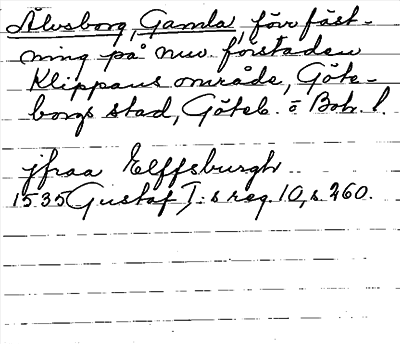 Älvsborg, Gamla, förr fäst-
ning på nuv. förstaden
Klippans område, Göte-
borgs stad, Göteb. o. Boh. l.
jfraa Elffsburgh
1535 Gustaf I:s reg. 10, s. 260.